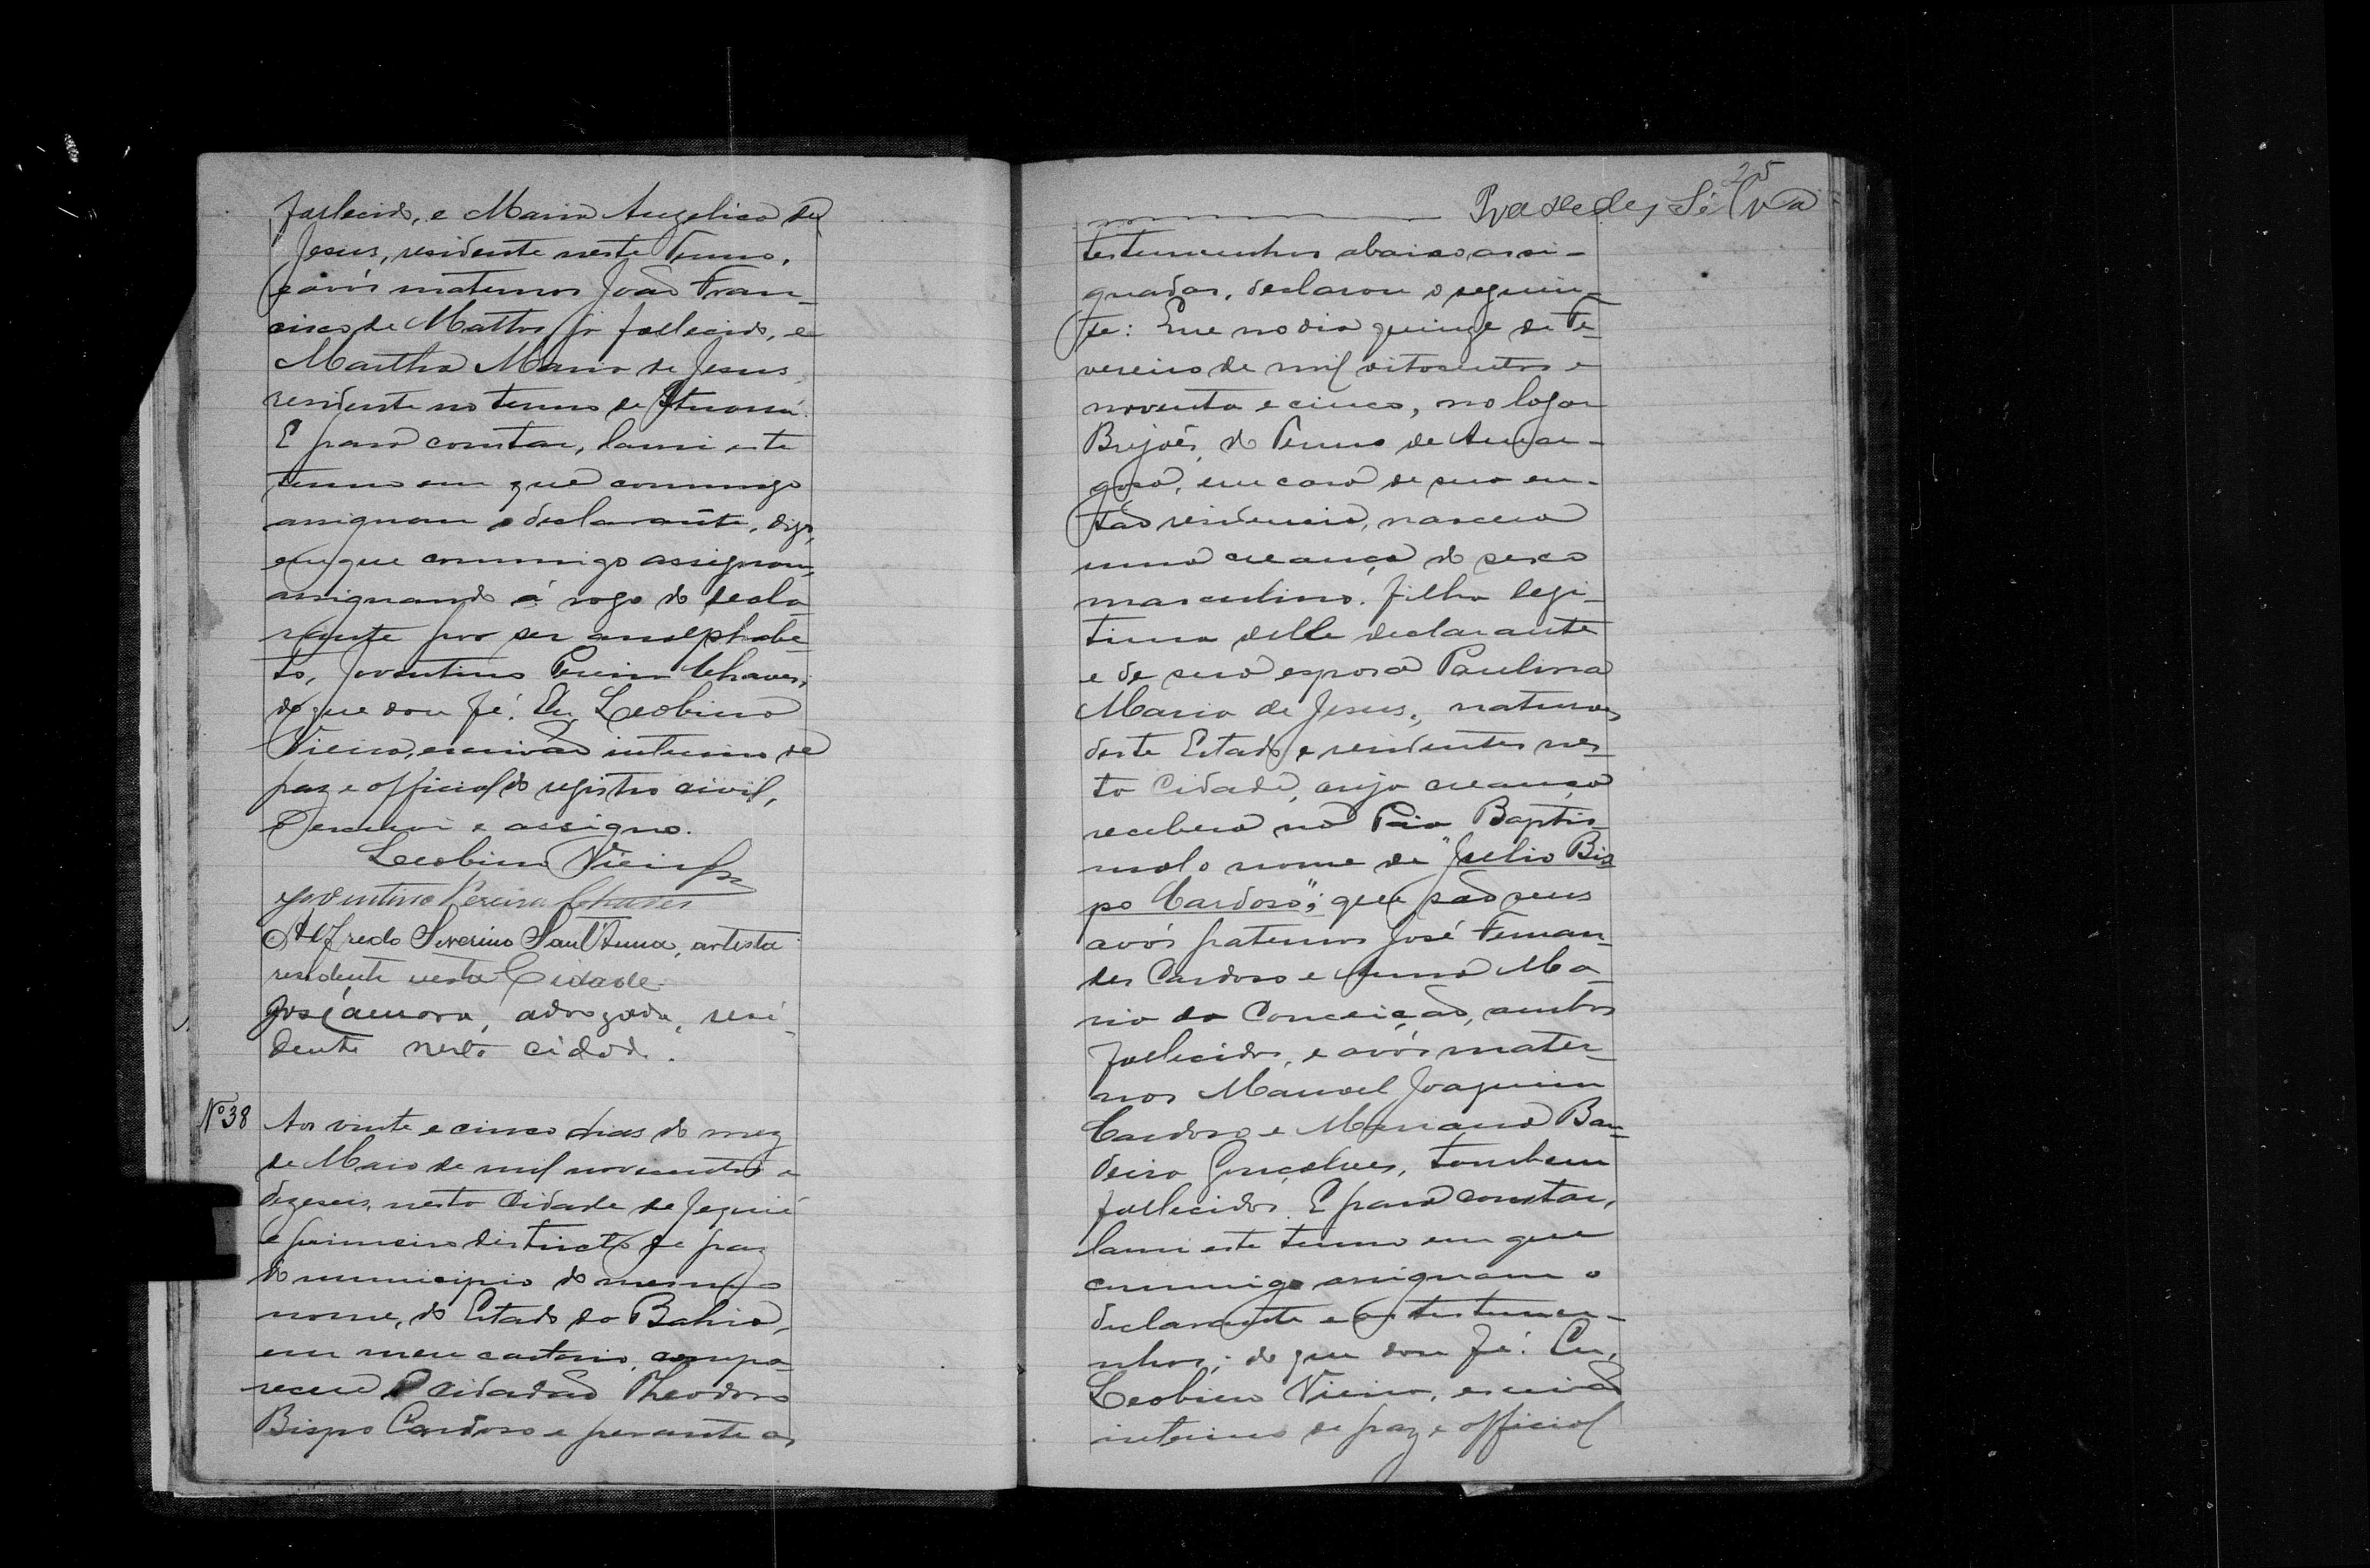 fallecido, e Maria Angelica de
Jesus, residente neste Termo,
e avós maternos João Fran-
cisco de Mattos já fallecido, e
Martha Maria de Jesus,
residente no termo de Ituassú.
E para constar, lavrei este
termo em que commigo
assignam o declarante, digo,
em que commigo assignam,
assignando á rogo do decla-
rante por ser analphabe-
to, Joventino Pereira Chaves;
do que dou fé. Eu Leobino
Vieira, escrivão interino de
paz e official do registro civil,
o escrevi e assigno.
Leobino Vieira
Joventino Pereira Chaves
Alfredo Severino Sant'Anna, artista
residente nesta Cidade
José , advogado, resi-
dente nesta cidade.
Nº 38
Aos vinte e cinco dias do mez
de Maio de mil novecentos e
dezeseis, nesta Cidade de Jequié
e primeiro districto de paz
do municipio do mesmo
nome, do Estado da Bahia,
em meu cartorio, compa-
receu o cidadão Theodoro
Bispo Cardoso e perante as
25
Praxedes Silva
testemunhas abaixo assi-
gnadas, declarou o seguin-
te: Que no dia quinze de Fe-
vereiro de mil oitocentos e
noventa e cinco, no logar
Brejões, do Termo de Amar-
gosa, em casa de sua en-
tão residencia, nasceu
uma creança do sexo
masculino, filha legi-
tima delle declarante
e de sua esposa Paulina
Maria de Jesus, naturaes
deste Estado e residentes nes-
ta Cidade, cuja creança
recebera na Pia Baptis-
mal o nome de "Julio Bis-
po Cardoso"; que são seus
avós paternos José Fernan-
des Cardoso e Anna Ma-
ria da Conceição, ambos
fallecidos, e avós mater-
nos Manoel Joaquim
Cardoso e Marianna Ban-
deira Gonçalves, tambem
fallecidos. E para constar,
lavrei este termo em que
commigo assignam o
declarante e as testemu-
nhas; do que dou fé. Eu,
Leobino Vieira, escrivão
interino de paz e official